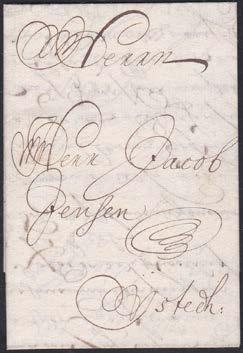 Herrn
Herr Jacob
Jensen
Ÿstedh: